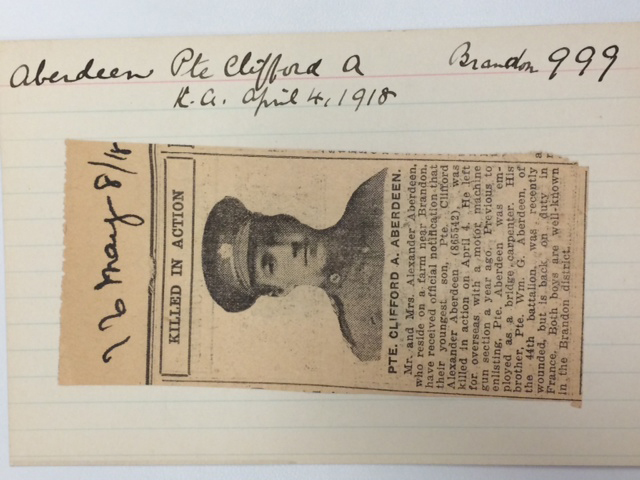 Aberdeen Pte Clifford A Brandon 999
K.A. April 4, 1918
May 8/18
KILLED IN ACTION
PTE. CLIFFORD A. ABERDEEN.
Mr. and Mrs. Alexander Aberdeen,
who reside on a farm near Brandon,
have received official notification that
their youngest son, Pte. Clifford
Alexander Aberdeen (865542), was
killed in action on April 4. He left
for overseas with a motor machine
gun section a year ago. Previous to
enlisting, Pte. Aberdeen was em-
ployed as a bridge carpenter. His
brother, Pte. Wm. G. Aberdeen, of
the 44th battalion, was recently
wounded, but is back on duty in
France. Both boys are well-known
in the Brandon district.